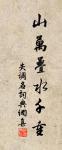 山萬疊水千重
失調名詞典網喜